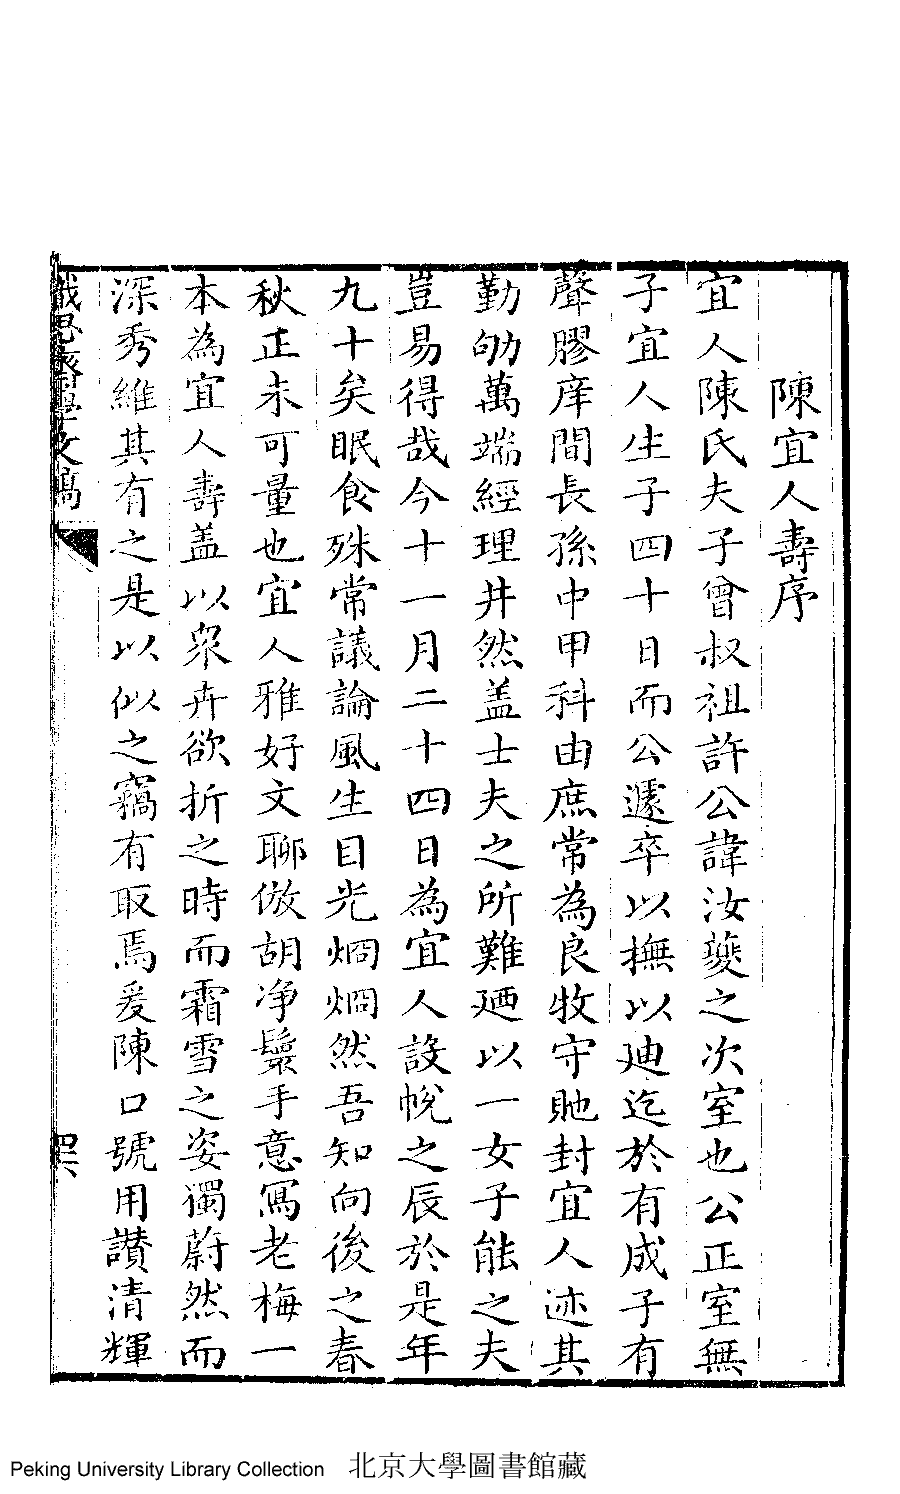 陳宜人壽序
宜人陳氏夫子曾叔祖許公諱汝夔之次室也公正室無
子宜人生子四十日而公遽卒以撫以迪迄於有成子有
聲膠庠間長孫中甲科由庶常為良牧守貤封宜人迹其
勤劬萬端經理井然盖士夫之所難廼以一女子能之夫
豈易得哉今十一月二十四日為宜人設帨之辰於是年
九十矣眠食殊常議論風生目光烱烱然吾知向後之春
秋正未可量也宜人雅好文聊倣胡净鬟手意寫老梅一
本為宜人壽盖以衆卉欲折之時而霜雪之姿獨蔚然而
深秀維其有之是以似之竊有取焉爰陳口號用讃清輝
戢思齋學文稿
四六
Peking University Library Collection 北京大學圖書館藏